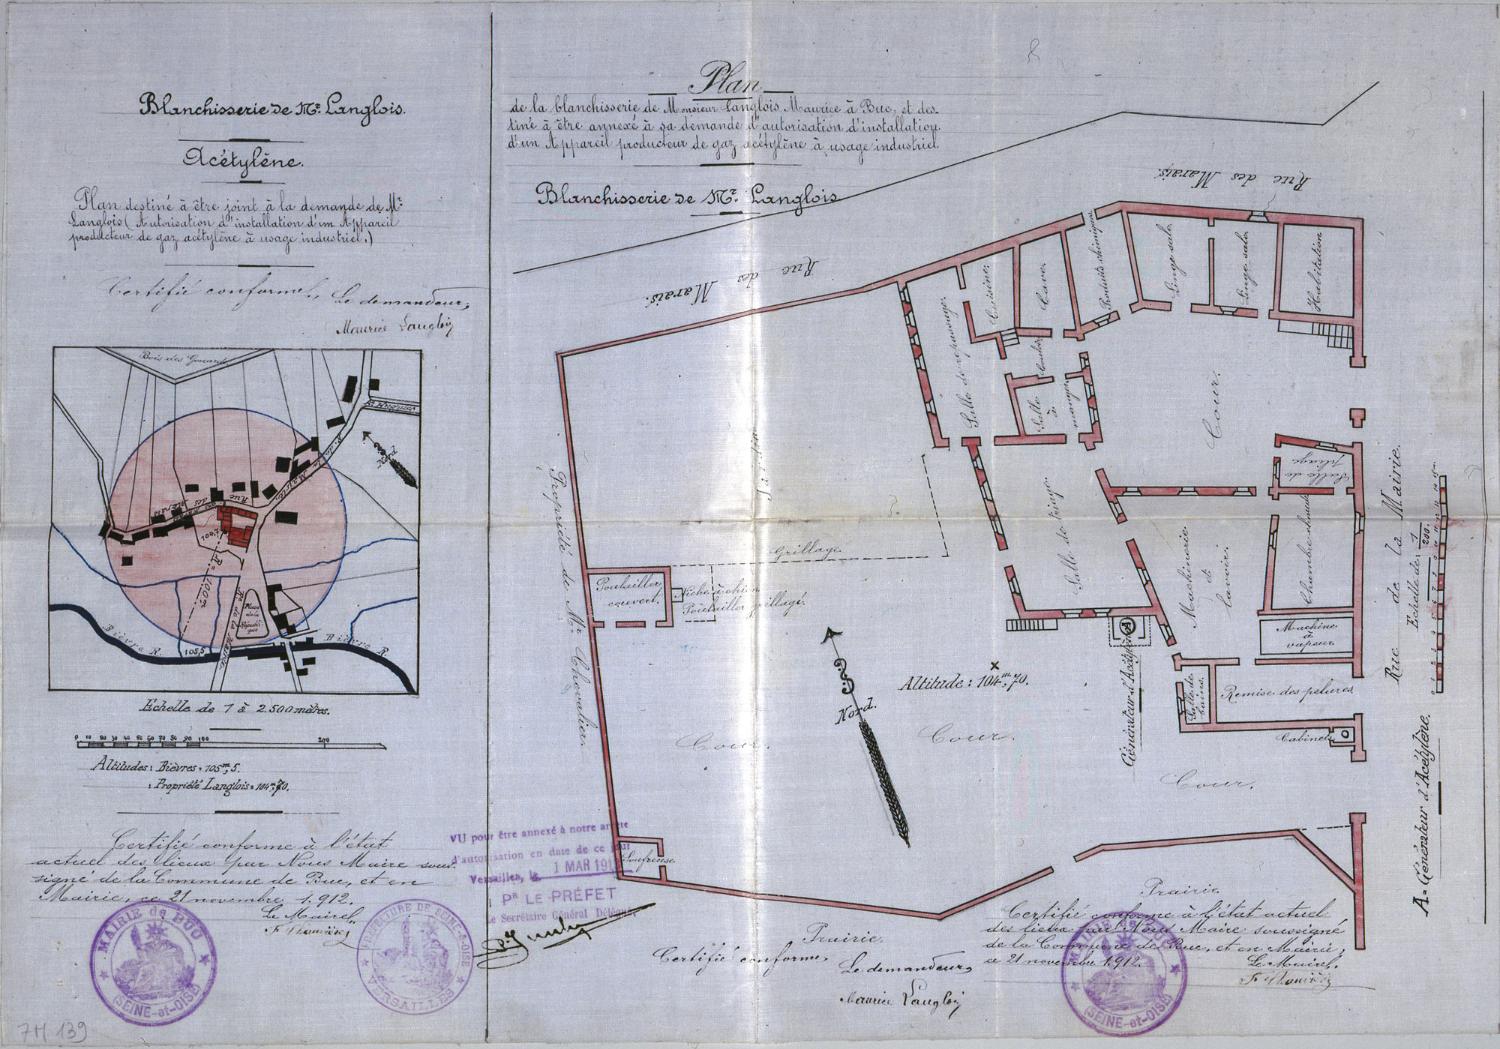 Blanchisserie de Mr. Langlois.
Acétylène.
Plan destiné à être joint à la demande de Mr.
Langlois (Autorisation d'installation d'un Appareil
producteur de gaz acétylène à usage industriel.)
Certifié conforme, Le demandeur,
Maurice Langlois
Bois des Gonards
Nord
Rue des Marais
Rue de la Mairie
R = 100m
Place de la République
Bièvre R.
105,5
Bièvre R.
Echelle de 1 à 2500 mètres.
0 10 20 30 40 50 60 70 80 90 100 200
Altitudes: Bièvres = 105m,5.
: Propriété Langlois = 104m,70.
Certifié conforme à l'état
actuel des lieux par Nous Maire sous-
signé de la Commune de Buc, et en
Mairie, ce 21 novembre 1912.
Le Maire,
MAIRIE de BUC
(SEINE-et-OISE)
PREFECTURE DE SEINE-&-OISE
VERSAILLES
7M 139
VU pour être annexé à notre arrêté
d'autorisation en date de ce jour
Versailles, le 1 MAR 191
Pr LE PRÉFET
Le Secrétaire Général Délégué,
Plan
de la blanchisserie de Monsieur Langlois Maurice à Buc, et des-
tiné à être annexé à sa demande d'autorisation d'installation
d'un Appareil producteur de gaz acétylène à usage industriel
Blanchisserie de Mr. Langlois
Rue des Marais.
Rue des Marais.
Salle de repassage
Cuisine
Cave
Produits chimiques
Linge sale
Linge sale
Habitation
Salle à manger
Cour.
Salle de pliage
Jardin
Grillage
Propriété de Mr. Chevalier
Poulailler
couvert.
Niche à chien
Poulailler grillagé.
Machinerie
et
lavoir.
Chambre chaude
Machine
à
vapeur
Remise des pelures
Salle de bains.
Cabinet
Générateur d'Acétylène
Altitude: 104m,70.
Nord.
Cour.
Cour.
Cour.
Soufreuse
Prairie.
Prairie
Rue de la Mairie.
Echelle de 1/200.
A = Générateur d'Acétylène.
Certifié conforme,
Le demandeur,
Maurice Langlois
Certifié conforme à l'état actuel
des lieux par Nous Maire soussigné
de la Commune de Buc, et en Mairie,
ce 21 novembre 1912.
Le Maire,
(SEINE-et-OISE)